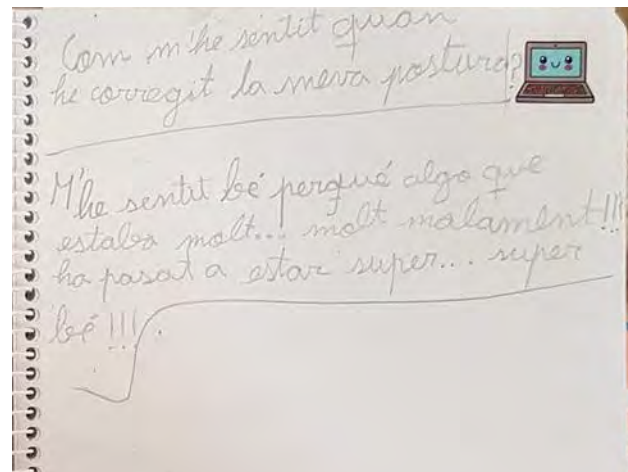 Com m'he sentit quan
he corregit la meva postura?
M'he sentit bé perqué algo que
estaba molt... molt malament!!!
ha pasat a estar super... super
bé!!!.